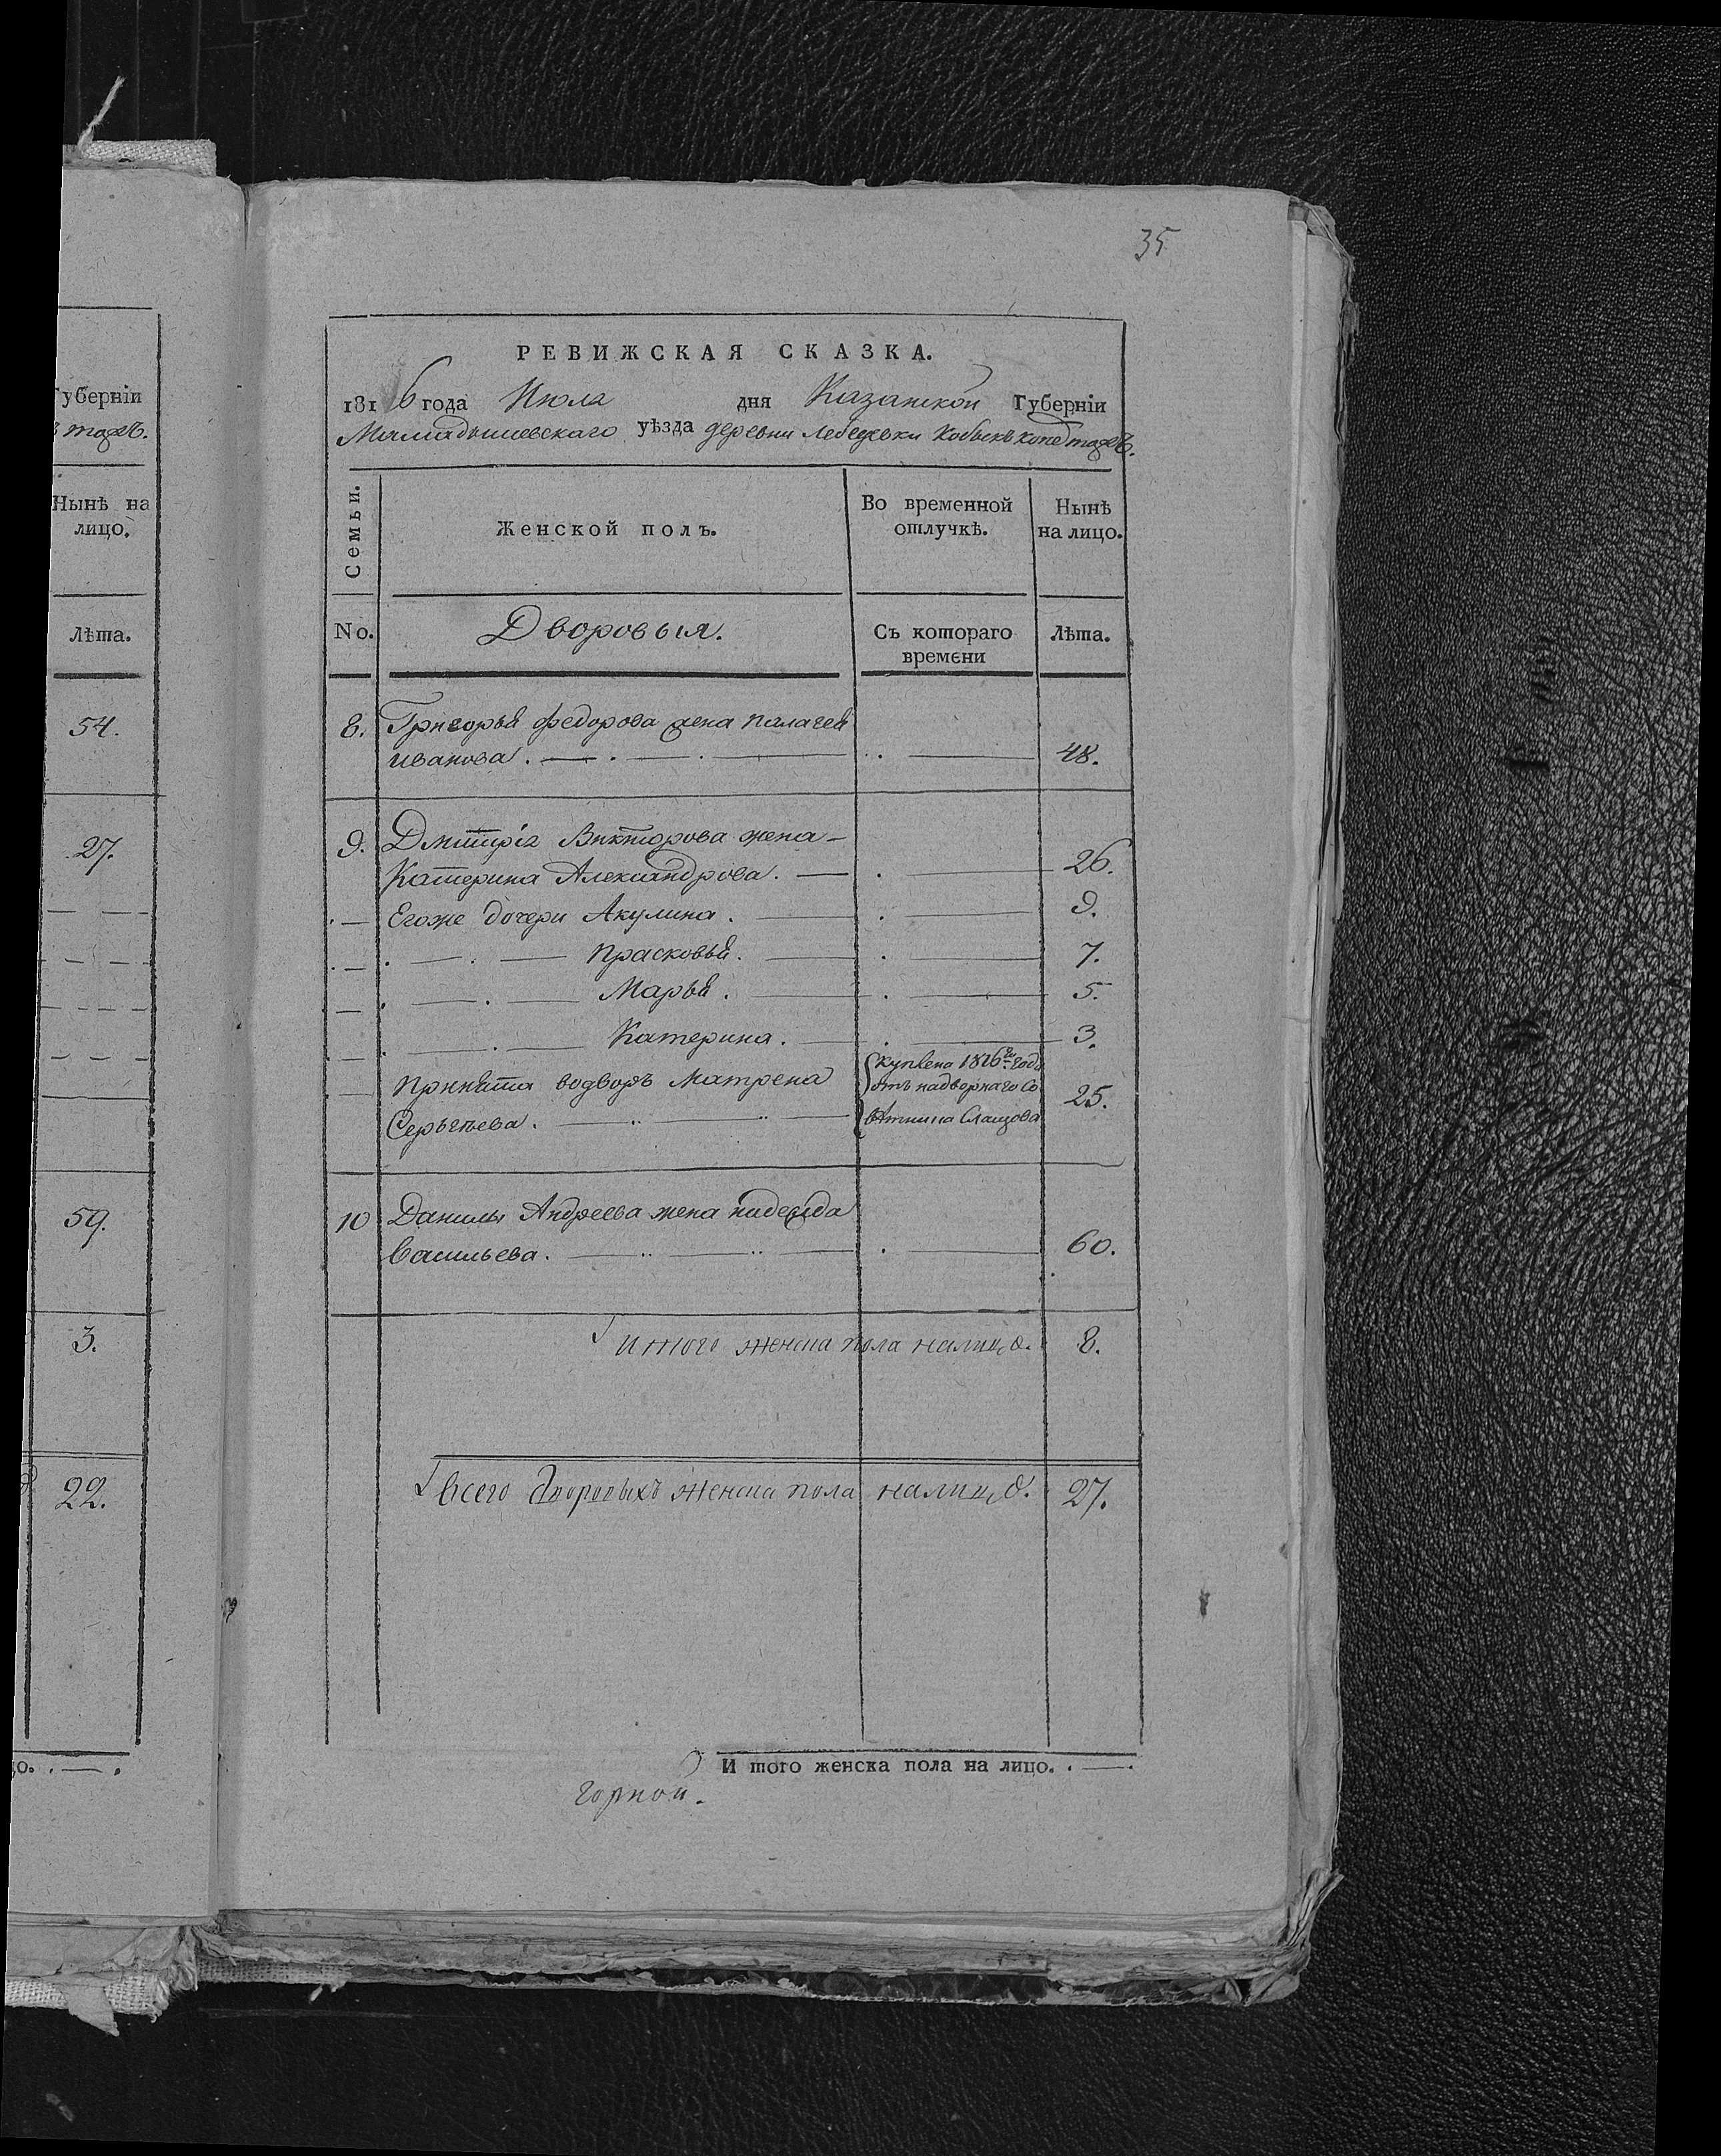 35
РЕВИЖСКАЯ СКАЗКА.
1816 года Июла дня Казанской Губернїи
Мамадышевскаго уѣзда деревни Лебедевки тожъ.
Семьи.
Женской полъ.
Во временной отлучкѣ.
Нынѣ на лицо.
No.
Дворовыя.
Съ котораго времени
Лѣта.
8. Григорья Федорова жена Палагея
Иванова. 48.
9. Дмитрїя Викторова жена
Катерина Александрова. 26.
Егоже дочери Акулина. 9.
Прасковья. 7.
Марья. 5.
Катерина. 3.
Принята водворъ Матрена
Сергѣева. 25.
куплена 1816го года
отъ надворнаго Со
вѣтника
10 Данилы Андреева жена Надежда
Васильева. 60.
Итого женска пола налицо. 8.
Всего дворовыхъ женска пола налицо. 27.
И того женска пола на лицо.
Губернїи
тожъ.
Нынѣ на
лицо.
Лѣта.
54.
27.
59.
3.
22.